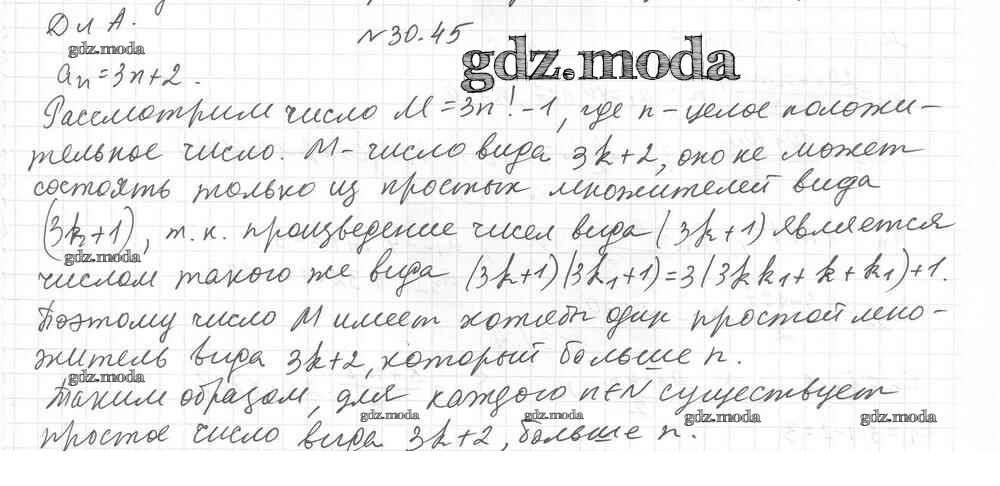 Дл А. №30.45
gdz.moda gdz.moda
aₙ=3n+2.
Рассмотрим число M=3n!-1, где n-целое положи-
тельное число. M-число вида 3k+2, оно не может
состоять только из простых множителей вида
(3k+1), т.к. произведение чисел вида (3k+1) является
gdz.moda
числом такого же вида (3k+1)(3k₁+1)=3(3kk₁+k+k₁)+1.
Поэтому число M имеет хотя бы один простой мно-
житель вида 3k+2, который больше n.
gdz.moda
Таким образом, для каждого n∈N существует
gdz.moda gdz.moda gdz.moda gdz.moda
простое число вида 3k+2, больше n.